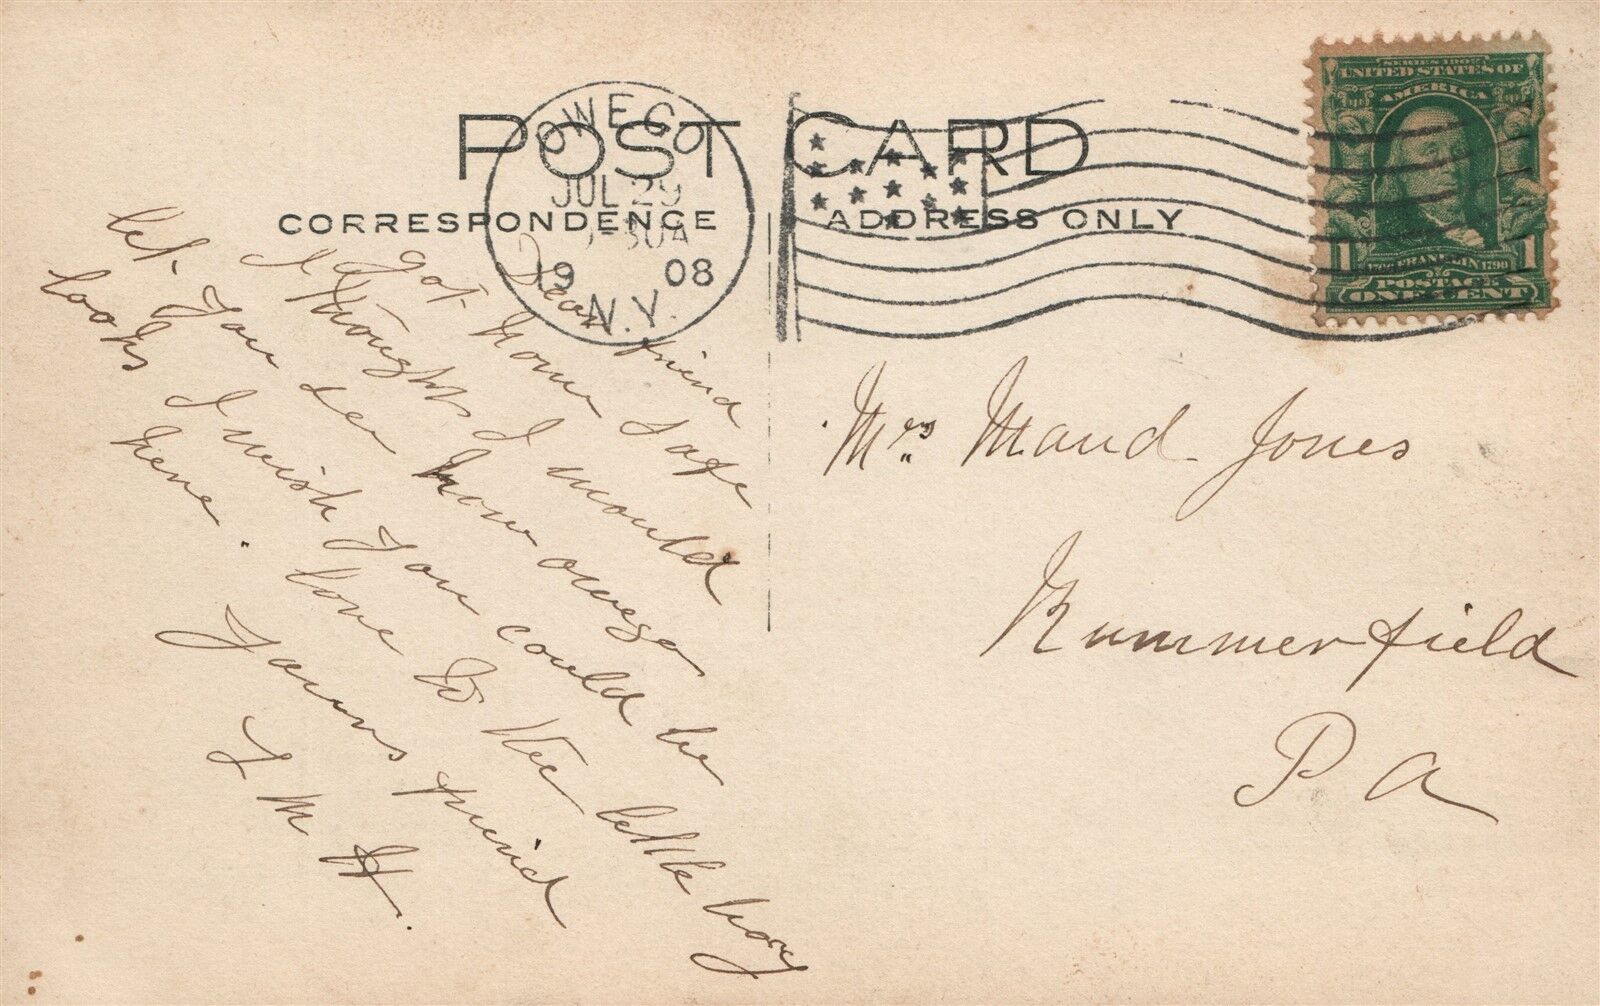 POST CARD
CORRESPONDENCE
ADDRESS ONLY
OWEGO
JUL 29
30A
1908
N.Y.
SERIES 1902
UNITED STATES OF
AMERICA
FRANKLIN 1790
1 1
POSTAGE
ONE CENT
Dear friend
got home safe
I thought I would
let you see how owego
looks I wish you could be
here. love to the little boy
Yours friend
I M H.
Mrs Maud Jones
Rummerfield
Pa